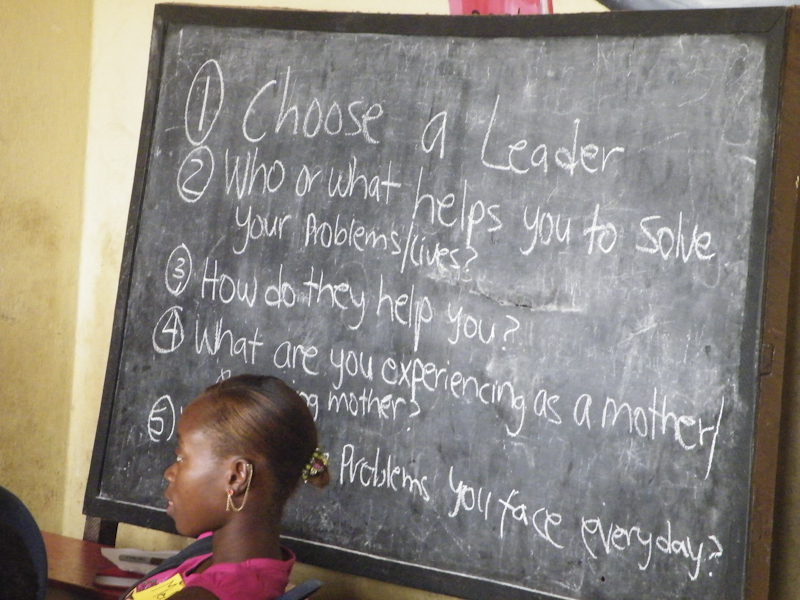 1 Choose a Leader
2 Who or what helps you to solve
your Problems/Lives?
3 How do they help you?
4 What are you experiencing as a mother/
mother?
5
Problems you face everyday?